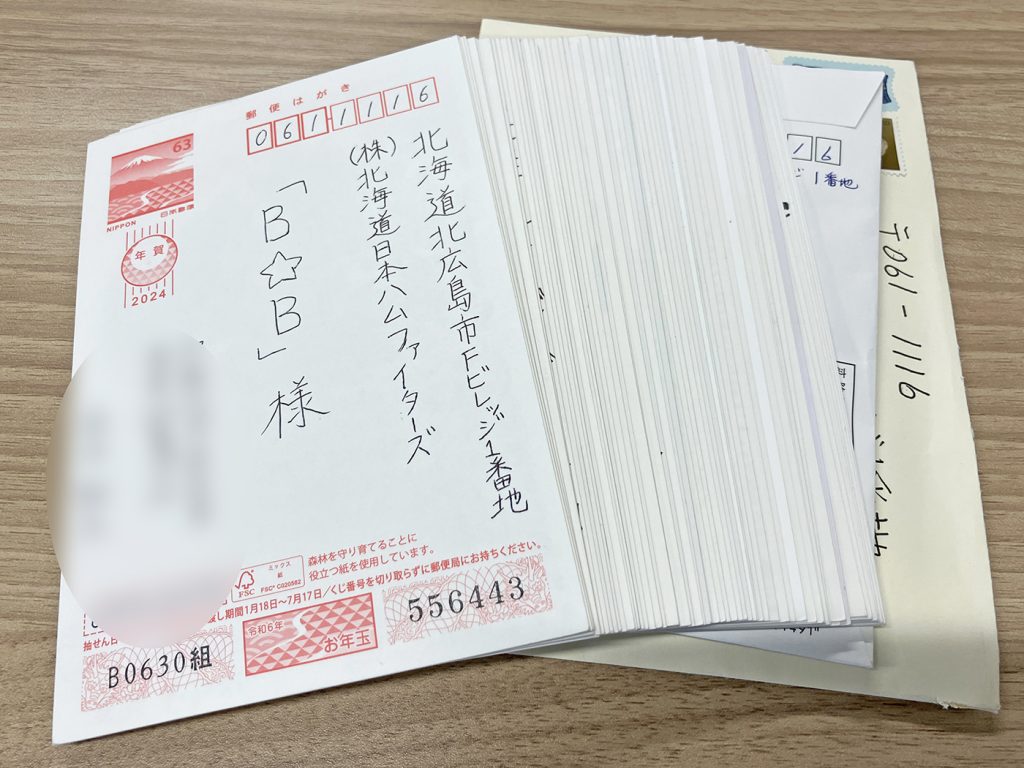 郵便はがき
0611116
63
日本郵便
NIPPON
年賀
2024
北海道北広島市Fビレッジ1番地
(株)北海道日本ハムファイターズ
「B☆B」様
ミックス
紙
FSC
FSC® C020562
森林を守り育てることに
役立つ紙を使用しています。
し期間1月18日~7月17日/くじ番号を切り取らずに郵便局にお持ちください。
抽せん日
B0630組
令和6年
お年玉
556443
16
1番地
〒061-1116